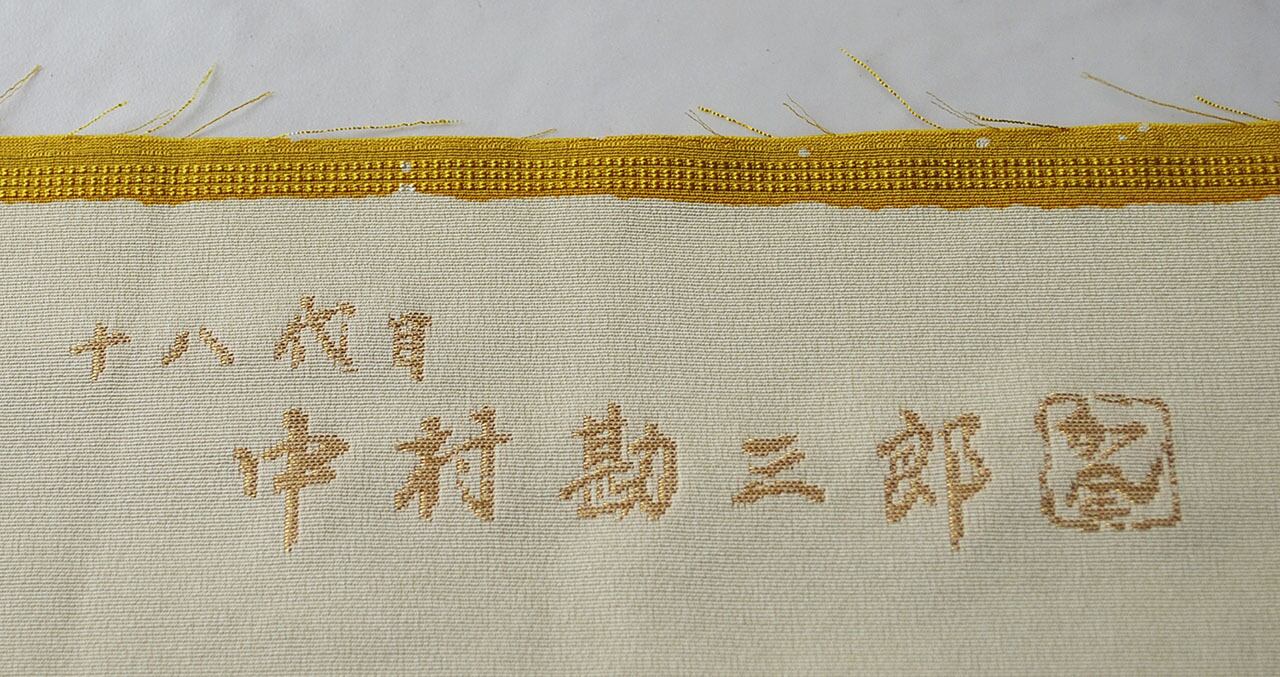 十八代目
中村勘三郎